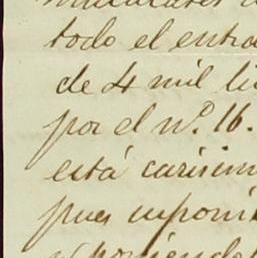 todo el entra
de 4 mil li
por el nº. 16.
está carisim
pues suponi